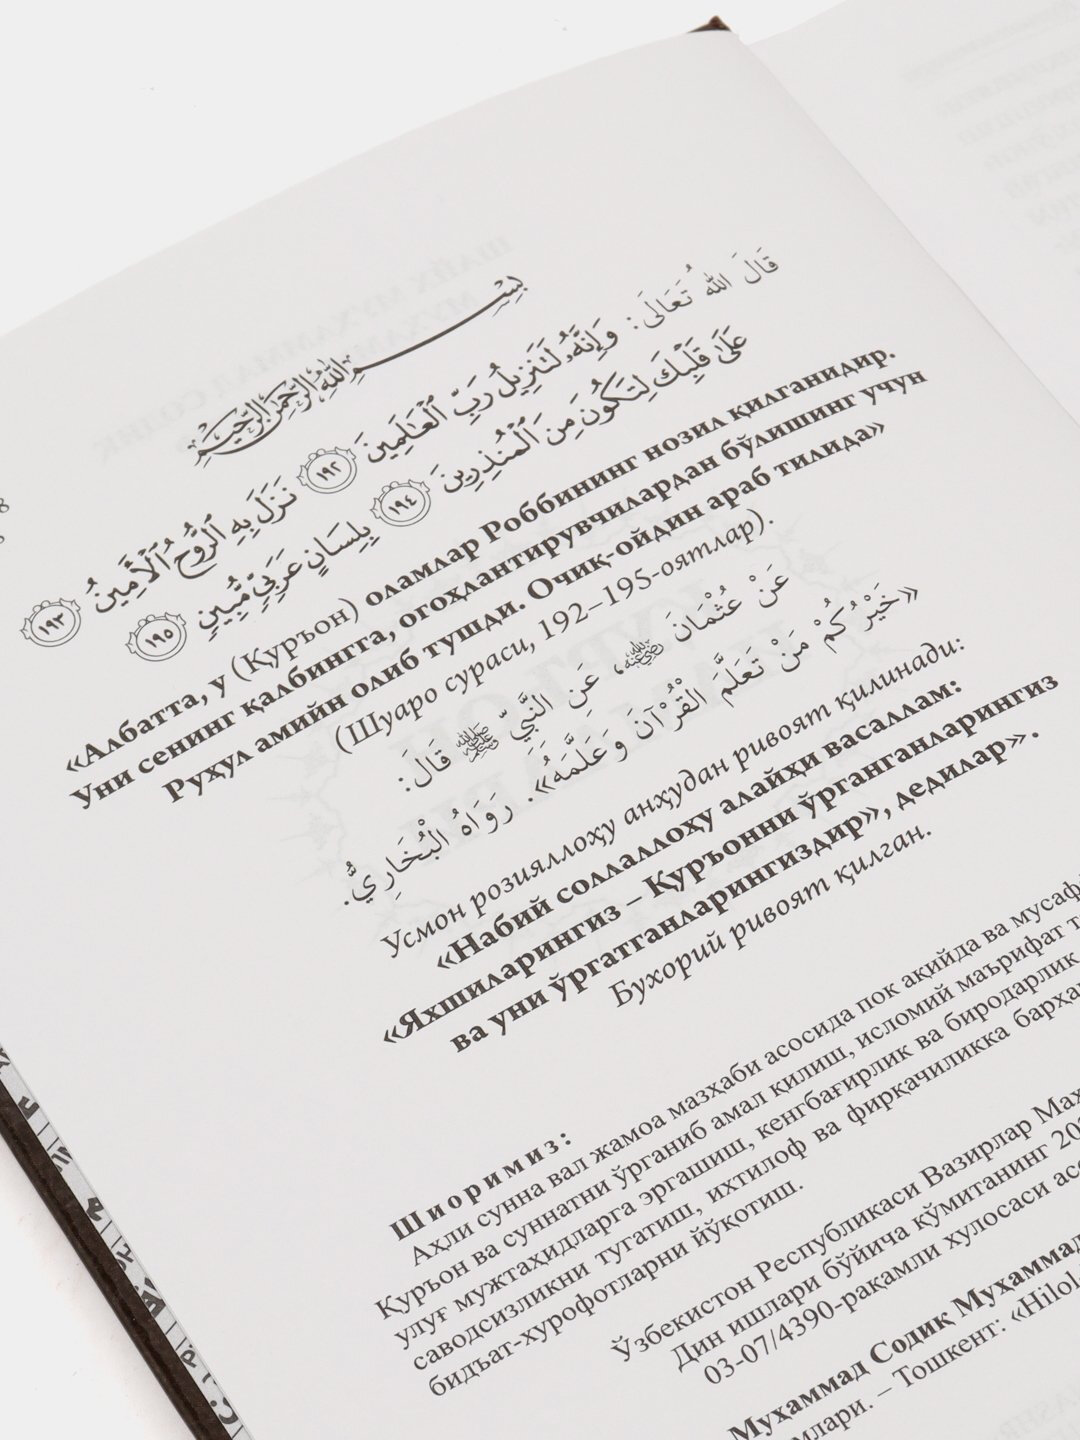 بِسْمِ اللهِ الرَّحْمٰنِ الرَّحِيْمِ
قَالَ اللهُ تَعَالَى: وَإِنَّهُۥ لَتَنزِيلُ رَبِّ ٱلْعَٰلَمِينَ ١٩٢ نَزَلَ بِهِ ٱلرُّوحُ ٱلْأَمِينُ ١٩٣
عَلَىٰ قَلْبِكَ لِتَكُونَ مِنَ ٱلْمُنذِرِينَ ١٩٤ بِلِسَانٍ عَرَبِيٍّ مُّبِينٍ ١٩٥
«Албатта, у (Қуръон) оламлар Роббининг нозил қилганидир.
Уни сенинг қалбингга, огоҳлантирувчилардан бўлишинг учун
Руҳул амийн олиб тушди. Очиқ-ойдин араб тилида»
(Шуаро сураси, 192–195-оятлар).
عَنْ عُثْمَانَ رضي الله عنه، عَنِ النَّبِيِّ ﷺ قَالَ:
«خَيْرُكُمْ مَنْ تَعَلَّمَ الْقُرْآنَ وَعَلَّمَهُ». رَوَاهُ الْبُخَارِيُّ.
Усмон розияллоҳу анҳудан ривоят қилинади:
«Набий соллаллоҳу алайҳи васаллам:
«Яхшиларингиз – Қуръонни ўрганганларингиз
ва уни ўргатганларингиздир», дедилар».
Бухорий ривоят қилган.
Шиоримиз:
Аҳли сунна вал жамоа мазҳаби асосида пок ақийда ва мусаф
Қуръон ва суннатни ўрганиб амал қилиш, исломий маърифат т
улуғ мужтаҳидларга эргашиш, кенгбағирлик ва биродарлик
саводсизликни тугатиш, ихтилоф ва фирқачиликка барҳа
бидъат-хурофотларни йўқотиш.
Ўзбекистон Республикаси Вазирлар Маҳ
Дин ишлари бўйича қўмитанинг 20
03-07/4390-рақамли хулосаси асо
Муҳаммад Содиқ Муҳаммад
млари. – Тошкент: «Hilol